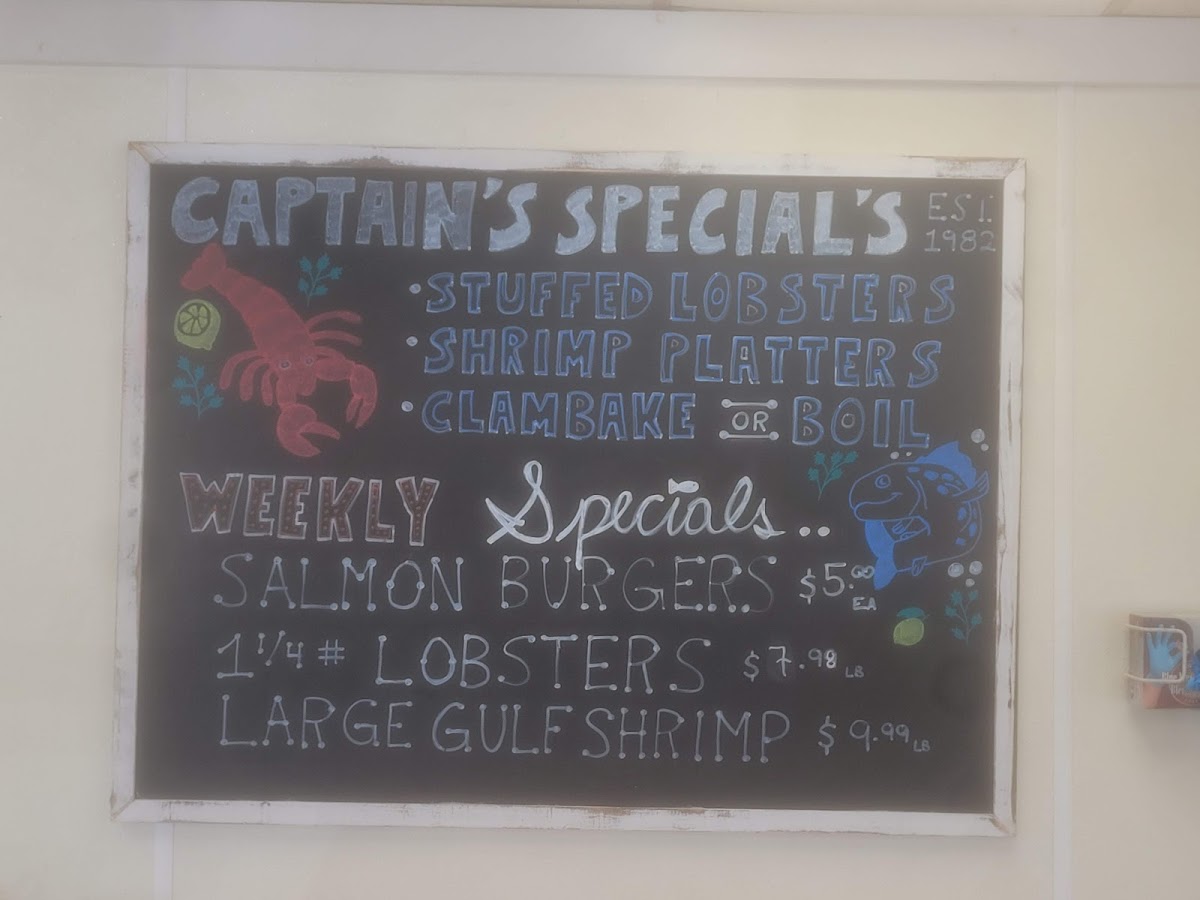 CAPTAIN'S SPECIAL'S EST. 1982
• STUFFED LOBSTERS
• SHRIMP PLATTERS
• CLAMBAKE OR BOIL
WEEKLY Specials..
SALMON BURGERS $5.00 EA
1 1/4 # LOBSTERS $7.98 LB
LARGE GULF SHRIMP $9.99 LB